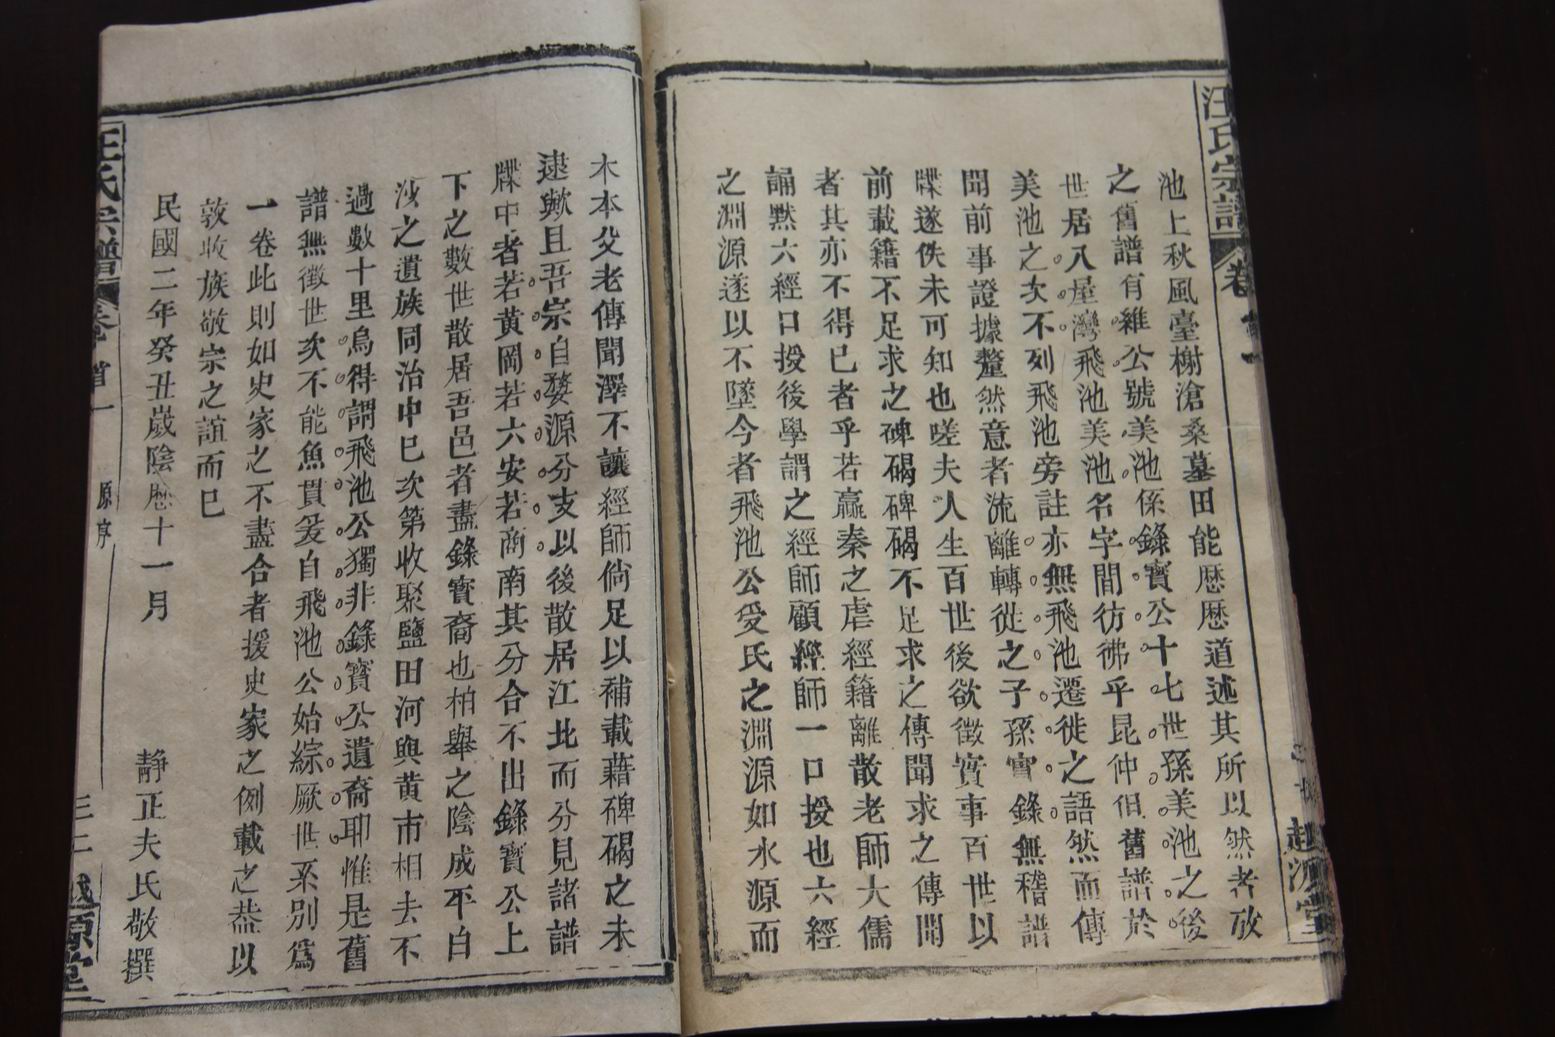 汪氏宗譜
卷
池上秋風臺榭滄桑墓田能歷歷道述其所以然者放
之舊譜有維公號美池係錄寶公十七世孫美池之後
世居八屋灣飛池美池名字間彷彿乎昆仲但舊譜於
美池之次不列飛池旁註亦無飛池遷徙之語然而傳
聞前事證據釐然意者流離轉徙之子孫實錄無稽譜
牒遂佚未可知也嗟夫人生百世後欲徵實事百世以
前載籍不足求之碑碣碑碣不足求之傳聞求之傳聞
者其亦不得已者乎若嬴秦之虐經籍離散老師大儒
誦默六經口授後學謂之經師顧經師一口授也六經
之淵源遂以不墜今者飛池公受氏之淵源如水源而
木本父老傳聞澤不讓經師倘足以補載藉碑碣之未
逮歟且吾宗自婺源分支以後散居江北而分見諸譜
牒中者若黃岡若六安若商南其分合不出錄寶公上
下之數世散居吾邑者盡錄寶裔也柏舉之陰成平白
沙之遺族同治中巳次第收聚鹽田河與黃市相去不
過數十里烏得謂飛池公獨非錄寶公遺裔耶惟是舊
譜無徵世次不能魚貫爰自飛池公始綜厥世系別爲
一卷此則如史家之不盡合者援史家之例載之葢以
敦收族敬宗之誼而巳
民國二年癸丑歲陰歷十一月
靜正夫氏敬撰
汪氏宗譜
卷首一
原序
三二
越源堂